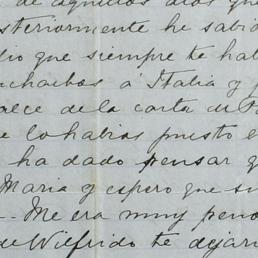 de aquellos dias que
steriormente he sabido
dio que siempre te hab
nchabas á Italia y p
alce de la carta de
e lo habias puesto e
ha dado pensar q
Maria y espero que su
-- Me era muy peno
de Wilfrido te dejar